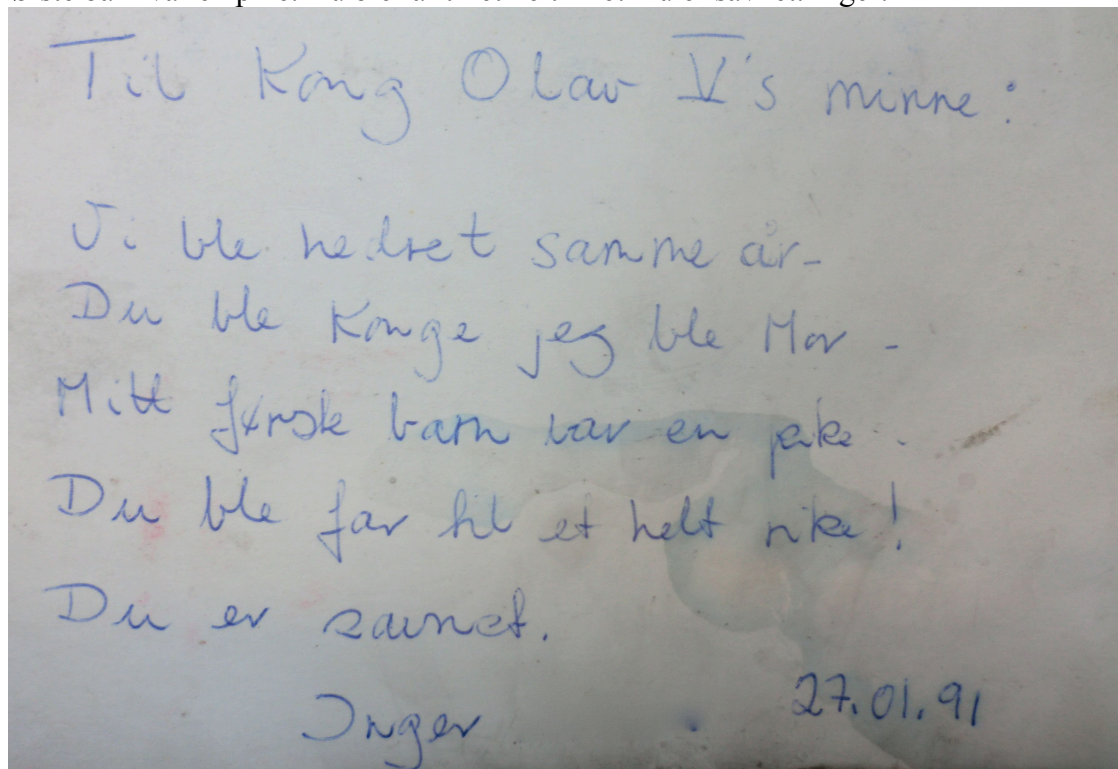 Til Kong Olav V's minne:
Vi ble hedret samme år-
Du ble Konge jeg ble Mor -
Mitt første barn var en pike.
Du ble far til et helt rike!
Du er savnet.
Inger
27.01.91